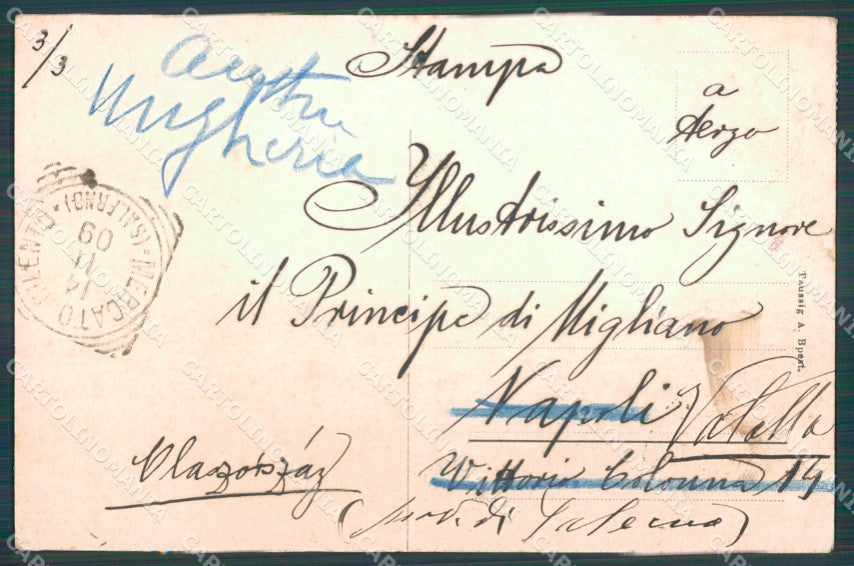 3/3
Austria
Ungheria
Stampa
a
tergo
Illustrissimo Signore
il Principe di Migliano
Napoli Valella
Vittoria Colonna 14
Olaszország
(prov. di Salerno)
MERCATO CILENTO
(SALERNO)
14
VI
09
Taussig A. Bpest.
CARTOLINOMANIA